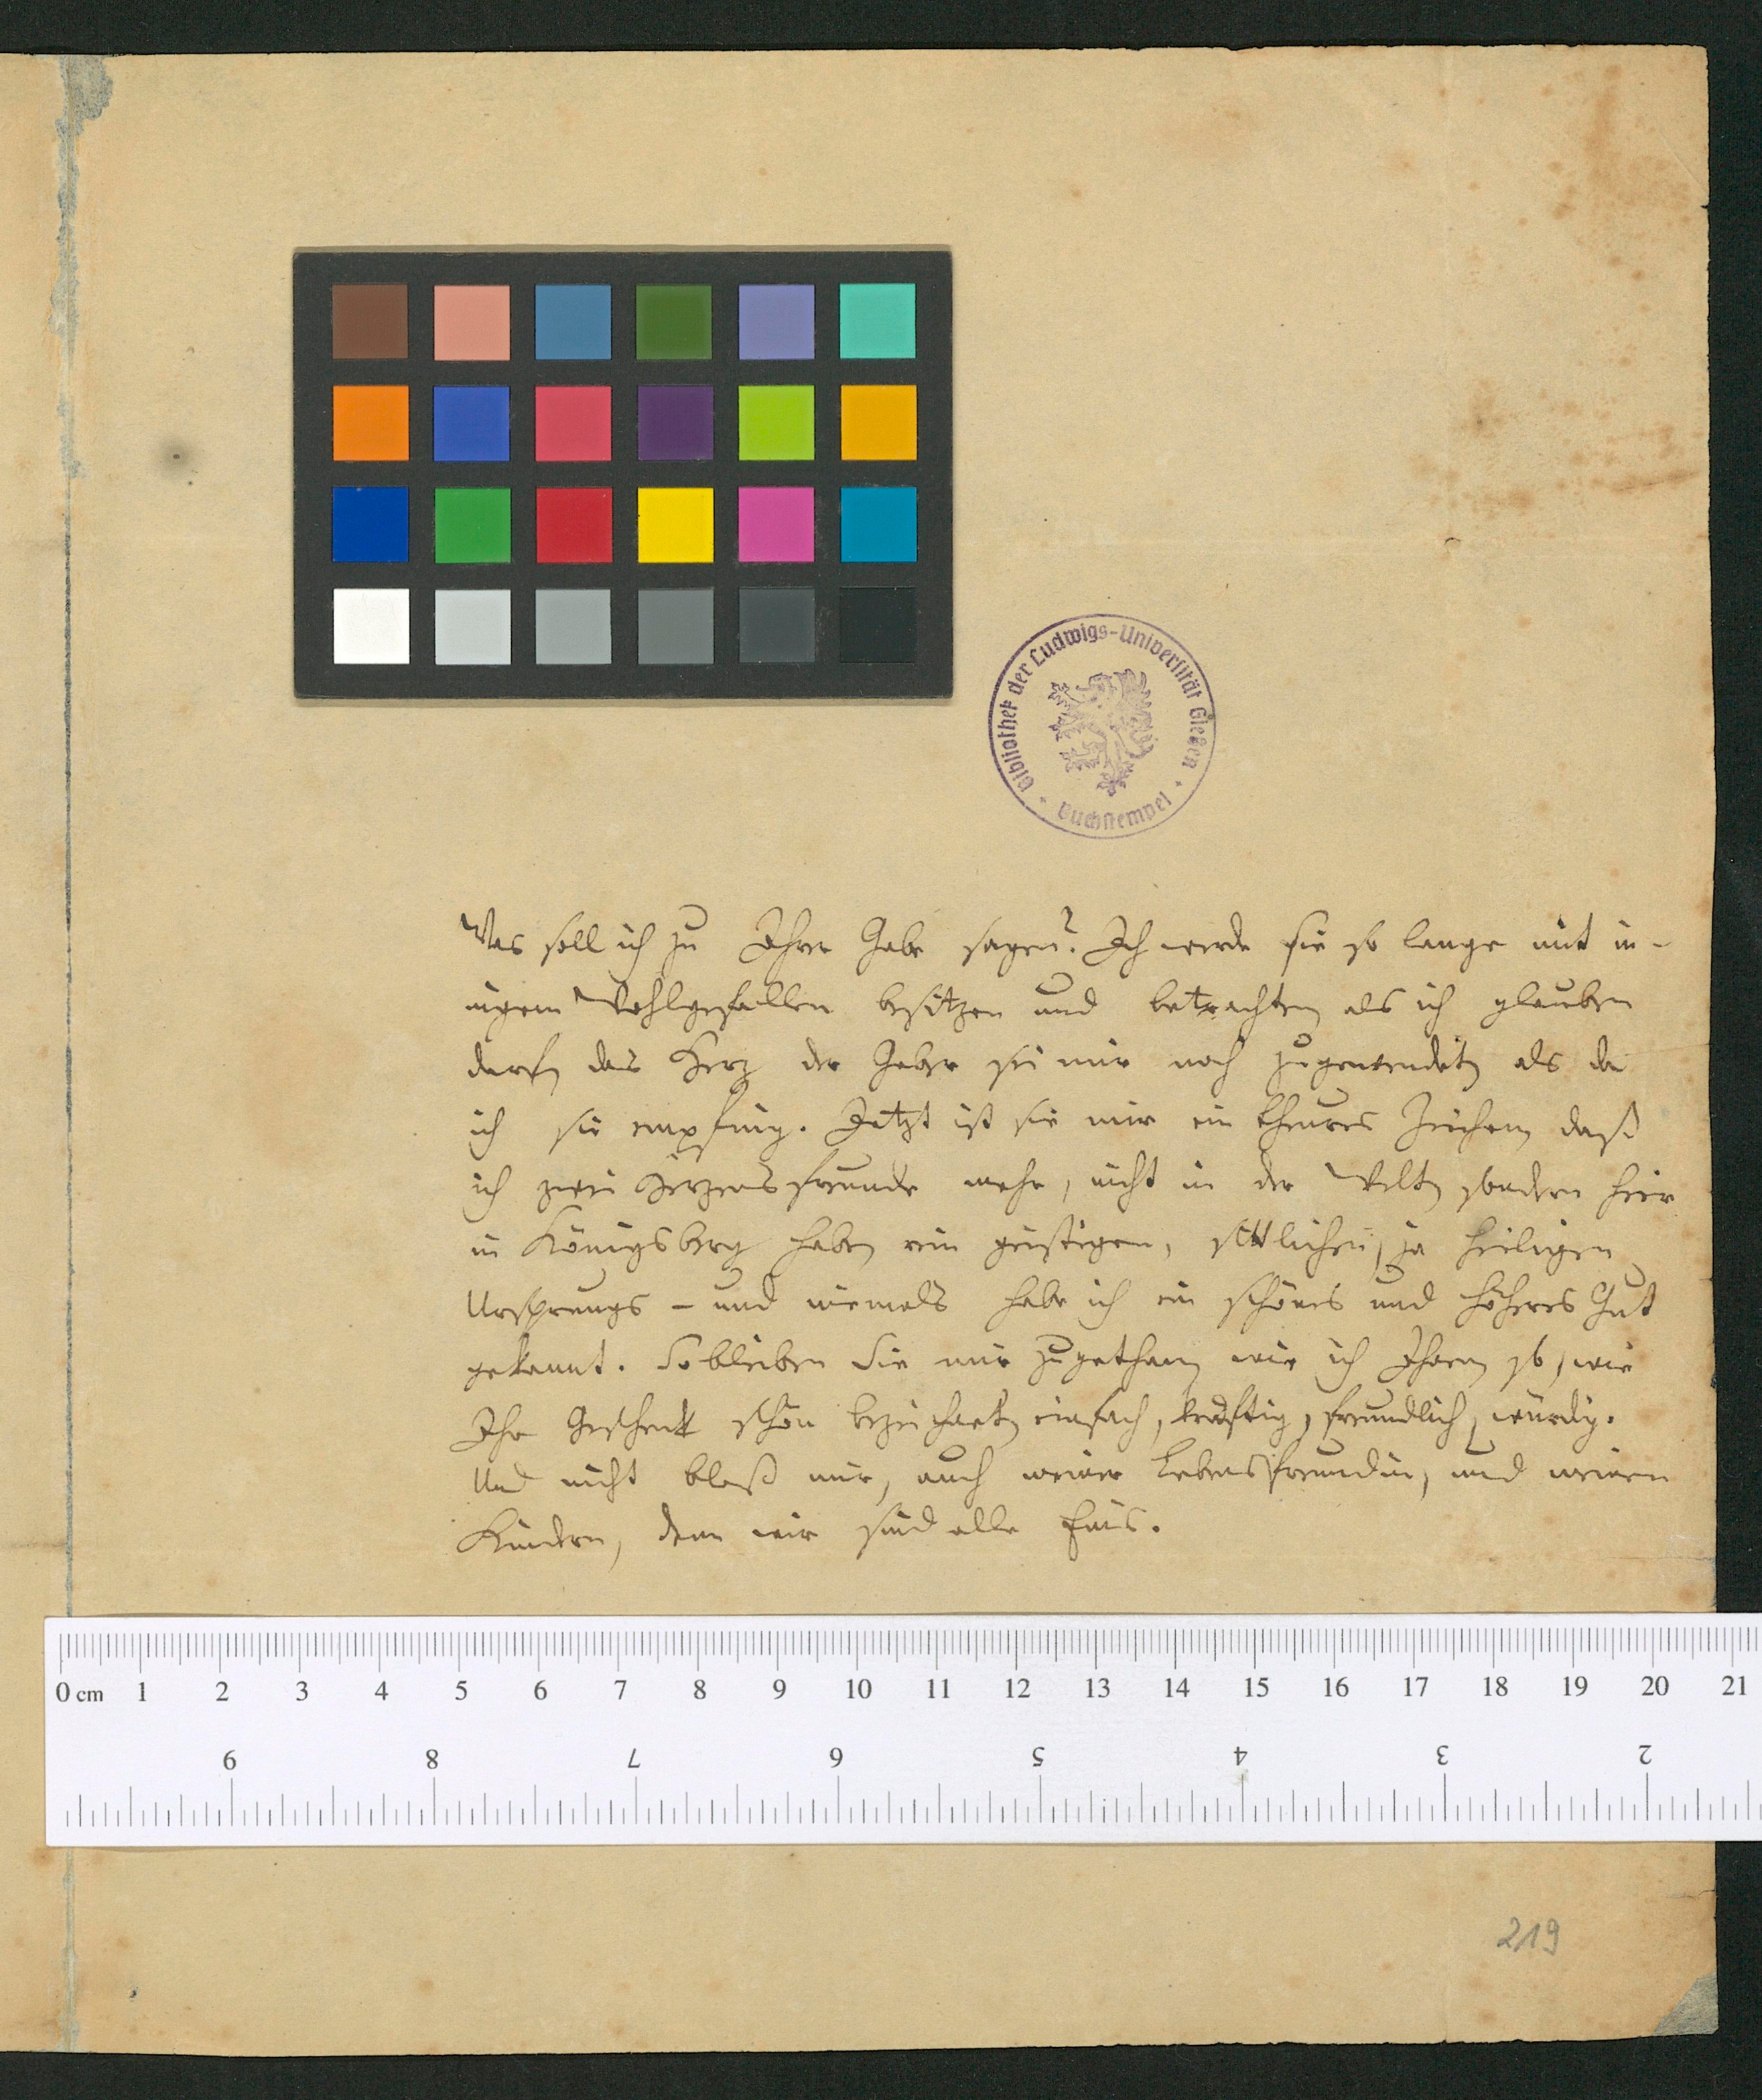 Bibliothek der Ludwigs-Universität Gießen
Buchstempel
Was soll ich zu Ihrer Gabe sagen? Ich werde sie so lange mit in-
nigem Wohlgefallen besitzen und betrachten als ich glauben
darf, das Herz der Geber sei mir noch zugewendet, als da
ich sie empfing. Jetzt ist sie mir ein theures Zeichen, daß
ich zwei Herzensfreunde mehr, nicht in der Welt, sondern hier
in Königsberg habe, rein geistigen, sittlichen, ja heiligen
Ursprungs – und niemals habe ich ein schönres und höheres Gut
gekannt. So bleiben Sie mir zugethan, wie ich Ihnen, so, wie
Ihr Geschenk schön bezeichnet, einfach, kräftig, freundlich, würdig.
Und nicht bloß mir, auch meiner Lebensfreundin, und meinen
Kindern, denn wir sind alle Eins.
0 cm 1 2 3 4 5 6 7 8 9 10 11 12 13 14 15 16 17 18 19 20 21
9 8 7 6 5 4 3 2
219